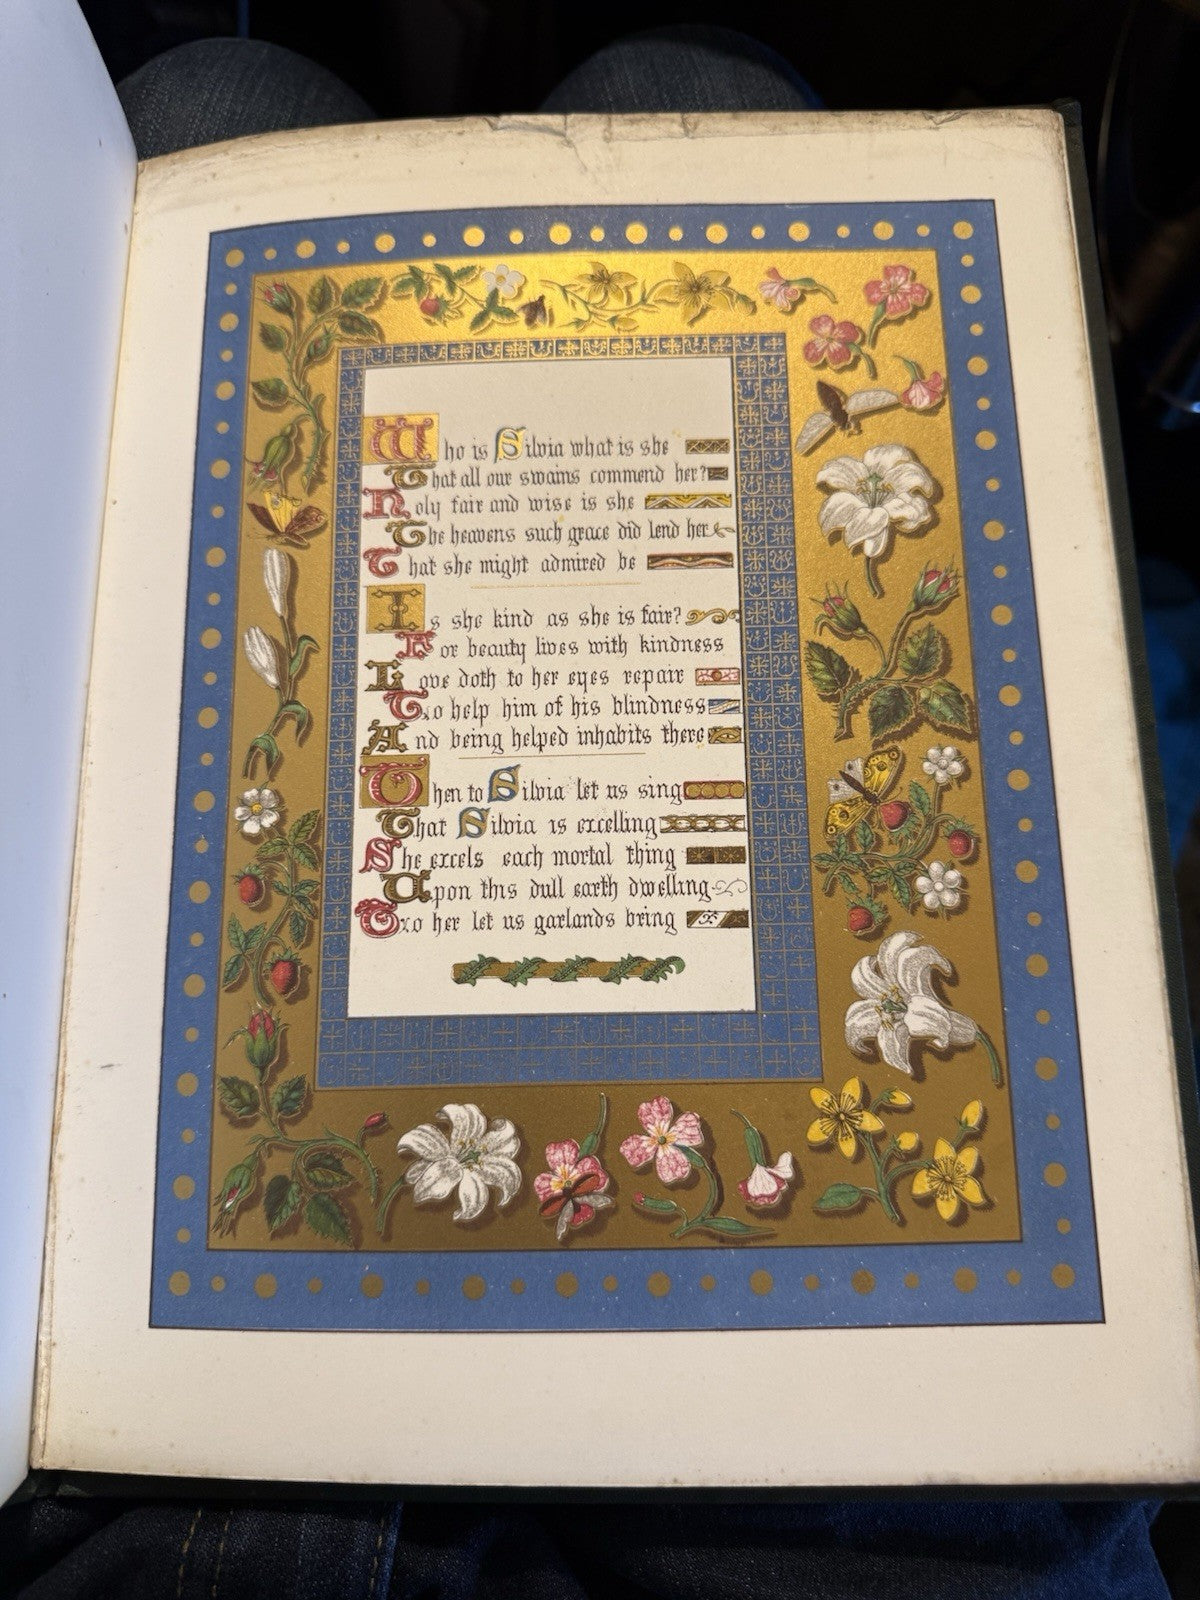 Who is Silvia what is she
That all our swains commend her?
Holy fair and wise is she
The heavens such grace did lend her
That she might admired be
Is she kind as she is fair?
For beauty lives with kindness
Love doth to her eyes repair
To help him of his blindness
And being helped inhabits there
Then to Silvia let us sing
That Silvia is excelling
She excels each mortal thing
Upon this dull earth dwelling
To her let us garlands bring